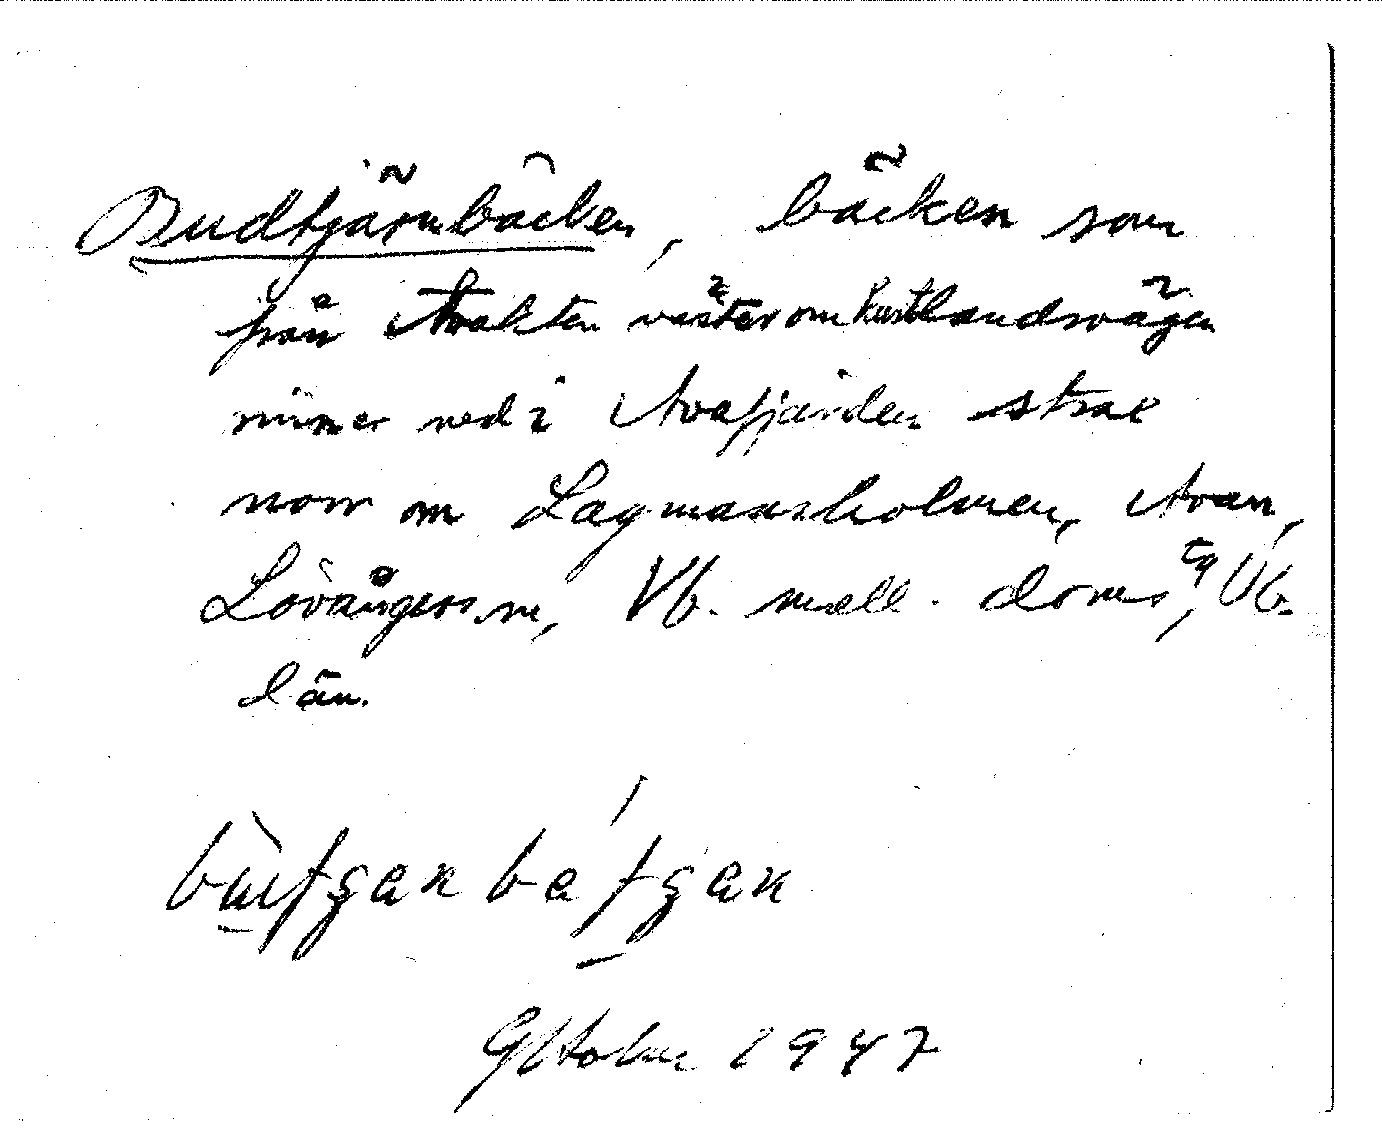 Budtjärnbäcken, bäcken som
från Avakten väster om kustlandsvägen
rinner ned i Avafjärden strax
norr om Lagmansholmen, Avan,
Lövångers sn, Vb. mell. doms, Vb.
län.
Oktober 1947